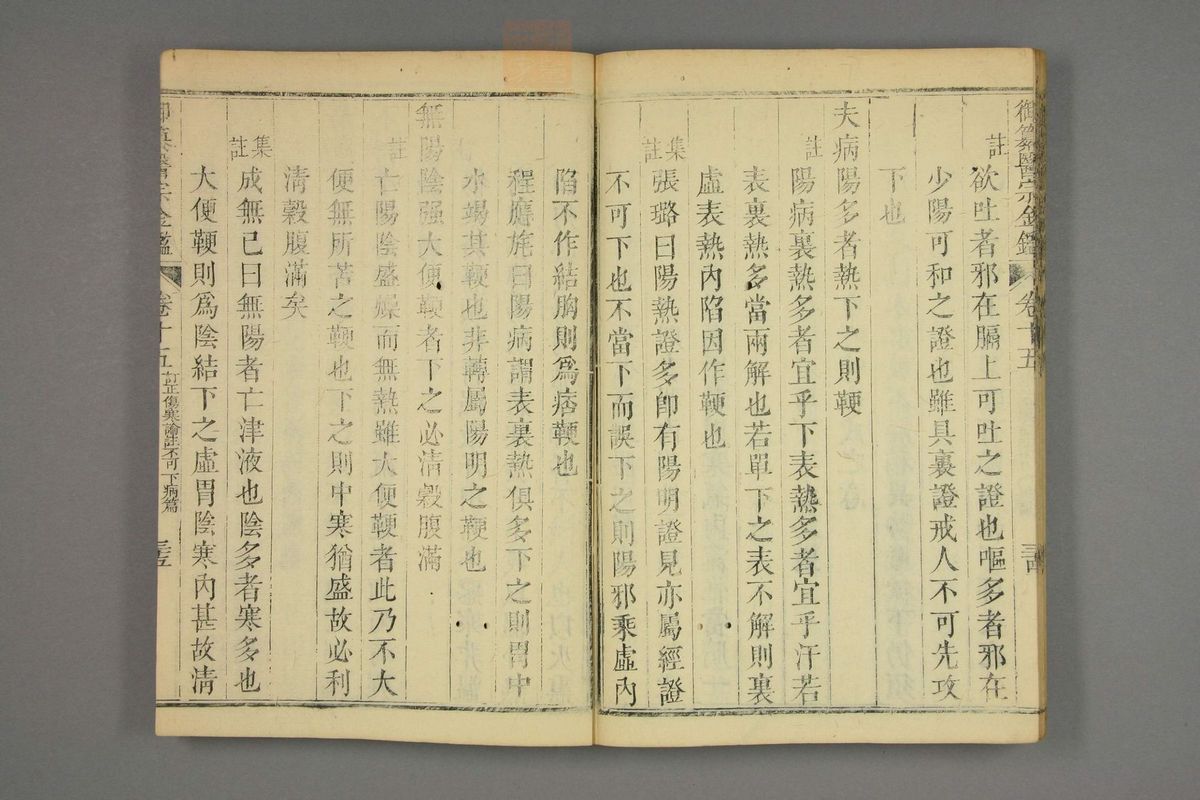 御纂醫宗金鑑 卷十五 三十四
註 欲吐者邪在膈上可吐之證也嘔多者邪在
少陽可和之證也雖具裏證戒人不可先攻
下也
夫病陽多者熱下之則鞕
註 陽病裏熱多者宜乎下表熱多者宜乎汗若
表裏熱多當兩解也若單下之表不解則裏
虛表熱內陷因作鞕也
集註 張璐曰陽熱證多卽有陽明證見亦屬經證
不可下也不當下而誤下之則陽邪乘虛內
陷不作結胸則爲痞鞕也
程應旄曰陽病謂表裏熱俱多下之則胃中
水竭其鞕也非轉屬陽明之鞕也
無陽陰强大便鞕者下之必清穀腹滿
註 亡陽陰盛燥而無熱雖大便鞕者此乃不大
便無所苦之鞕也下之則中寒猶盛故必利
清穀腹滿矣
集註 成無己曰無陽者亡津液也陰多者寒多也
大便鞕則爲陰結下之虛胃陰寒內甚故清
御纂醫宗金鑑 卷十五 訂正傷寒論註不可下病篇 三十五